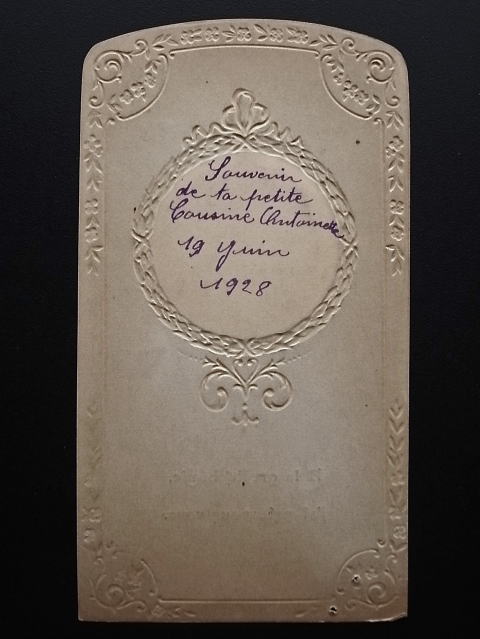 Souvenir
de ta petite
Cousine Antoinette
19 Juin
1928